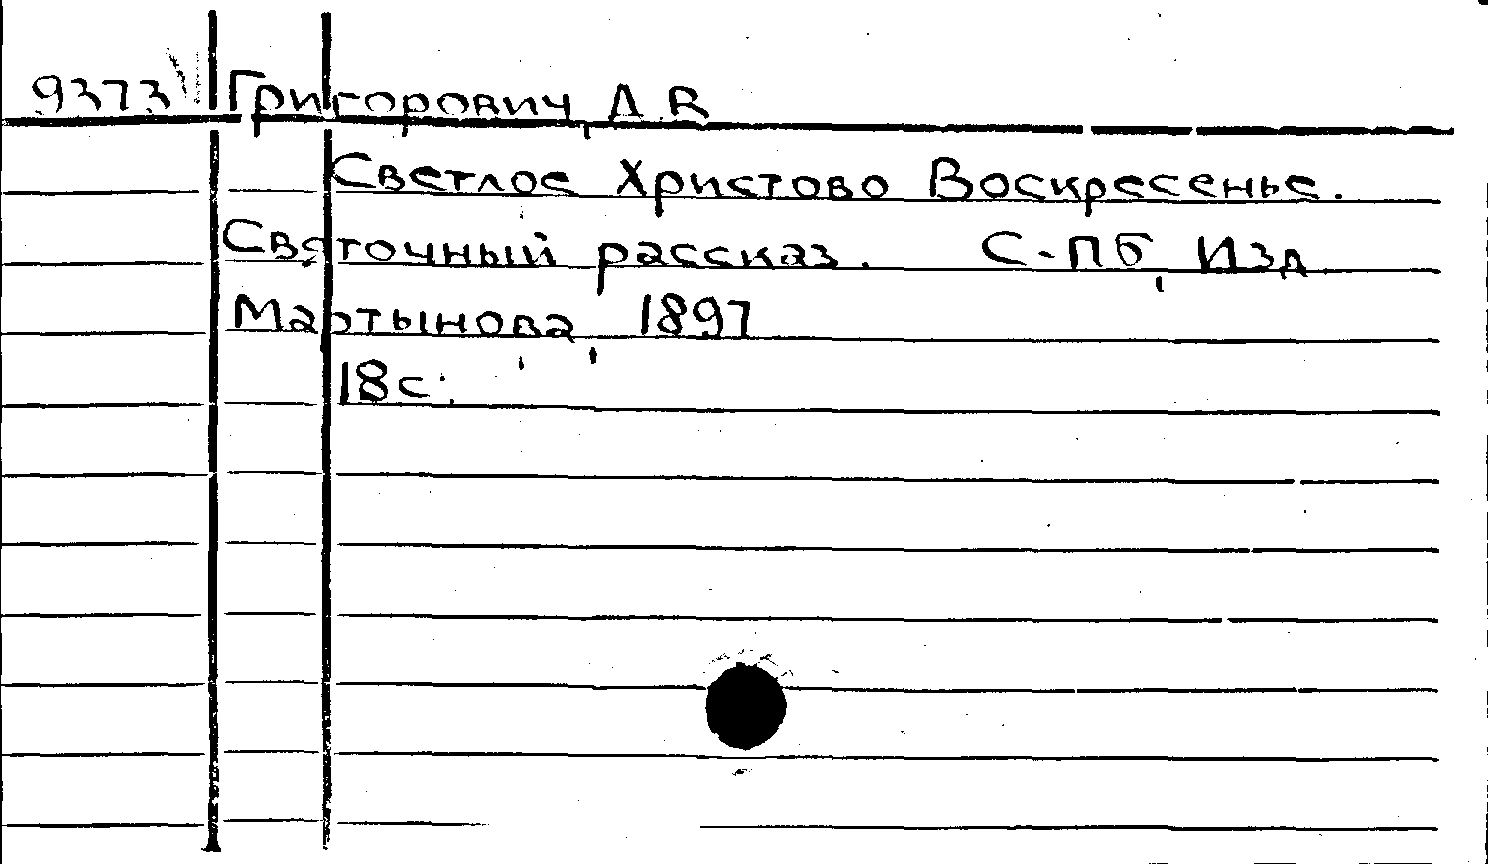 9373 Григорович, Д.В
Светлое Христово Воскресенье.
Святочный рассказ. С-Пб, Изд
Мартынова, 1897
18с.